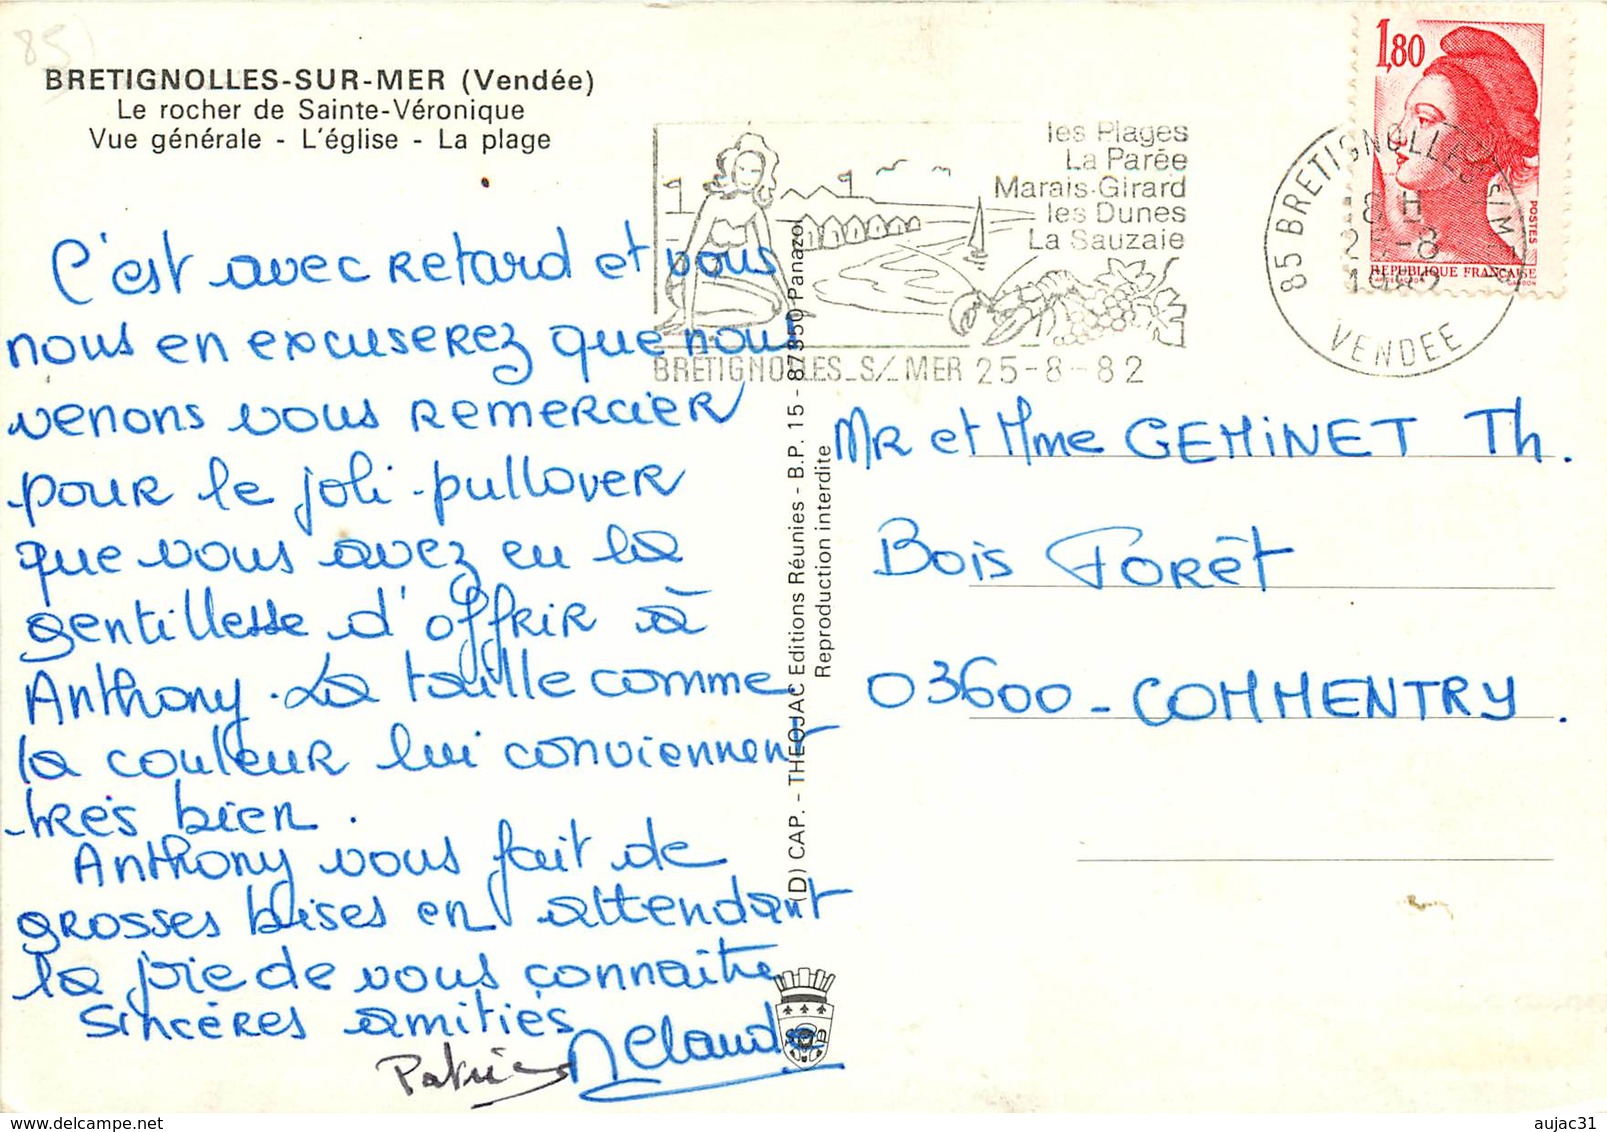 85)
BRETIGNOLLES-SUR-MER (Vendée)
Le rocher de Sainte-Véronique
Vue générale - L'église - La plage
les Plages
La Parée
Marais-Girard
les Dunes
La Sauzaie
BRETIGNOLLES_S/_MER 25-8-82
85 BRETIGNOLLES S/MER
8 H
25-8
1982
VENDEE
1,80
POSTES
REPUBLIQUE FRANÇAISE
GANDON
C'est avec retard et vous
nous en excuserez que nous
venons vous remercier
pour le joli pullover
que vous avez eu la
gentillesse d'offrir à
Anthony. La taille comme
la couleur lui conviennent
très bien.
Anthony vous fait de
grosses bises en attendant
la joie de vous connaître
Sincères amitiés
Patrice
(D) CAP. - THEOJAC Editions Réunies - B.P. 15 - 87350 Panazol
Reproduction interdite
MR et Mme GEMINET Th.
Bois Forêt
03600 - COMMENTRY.
aujac31